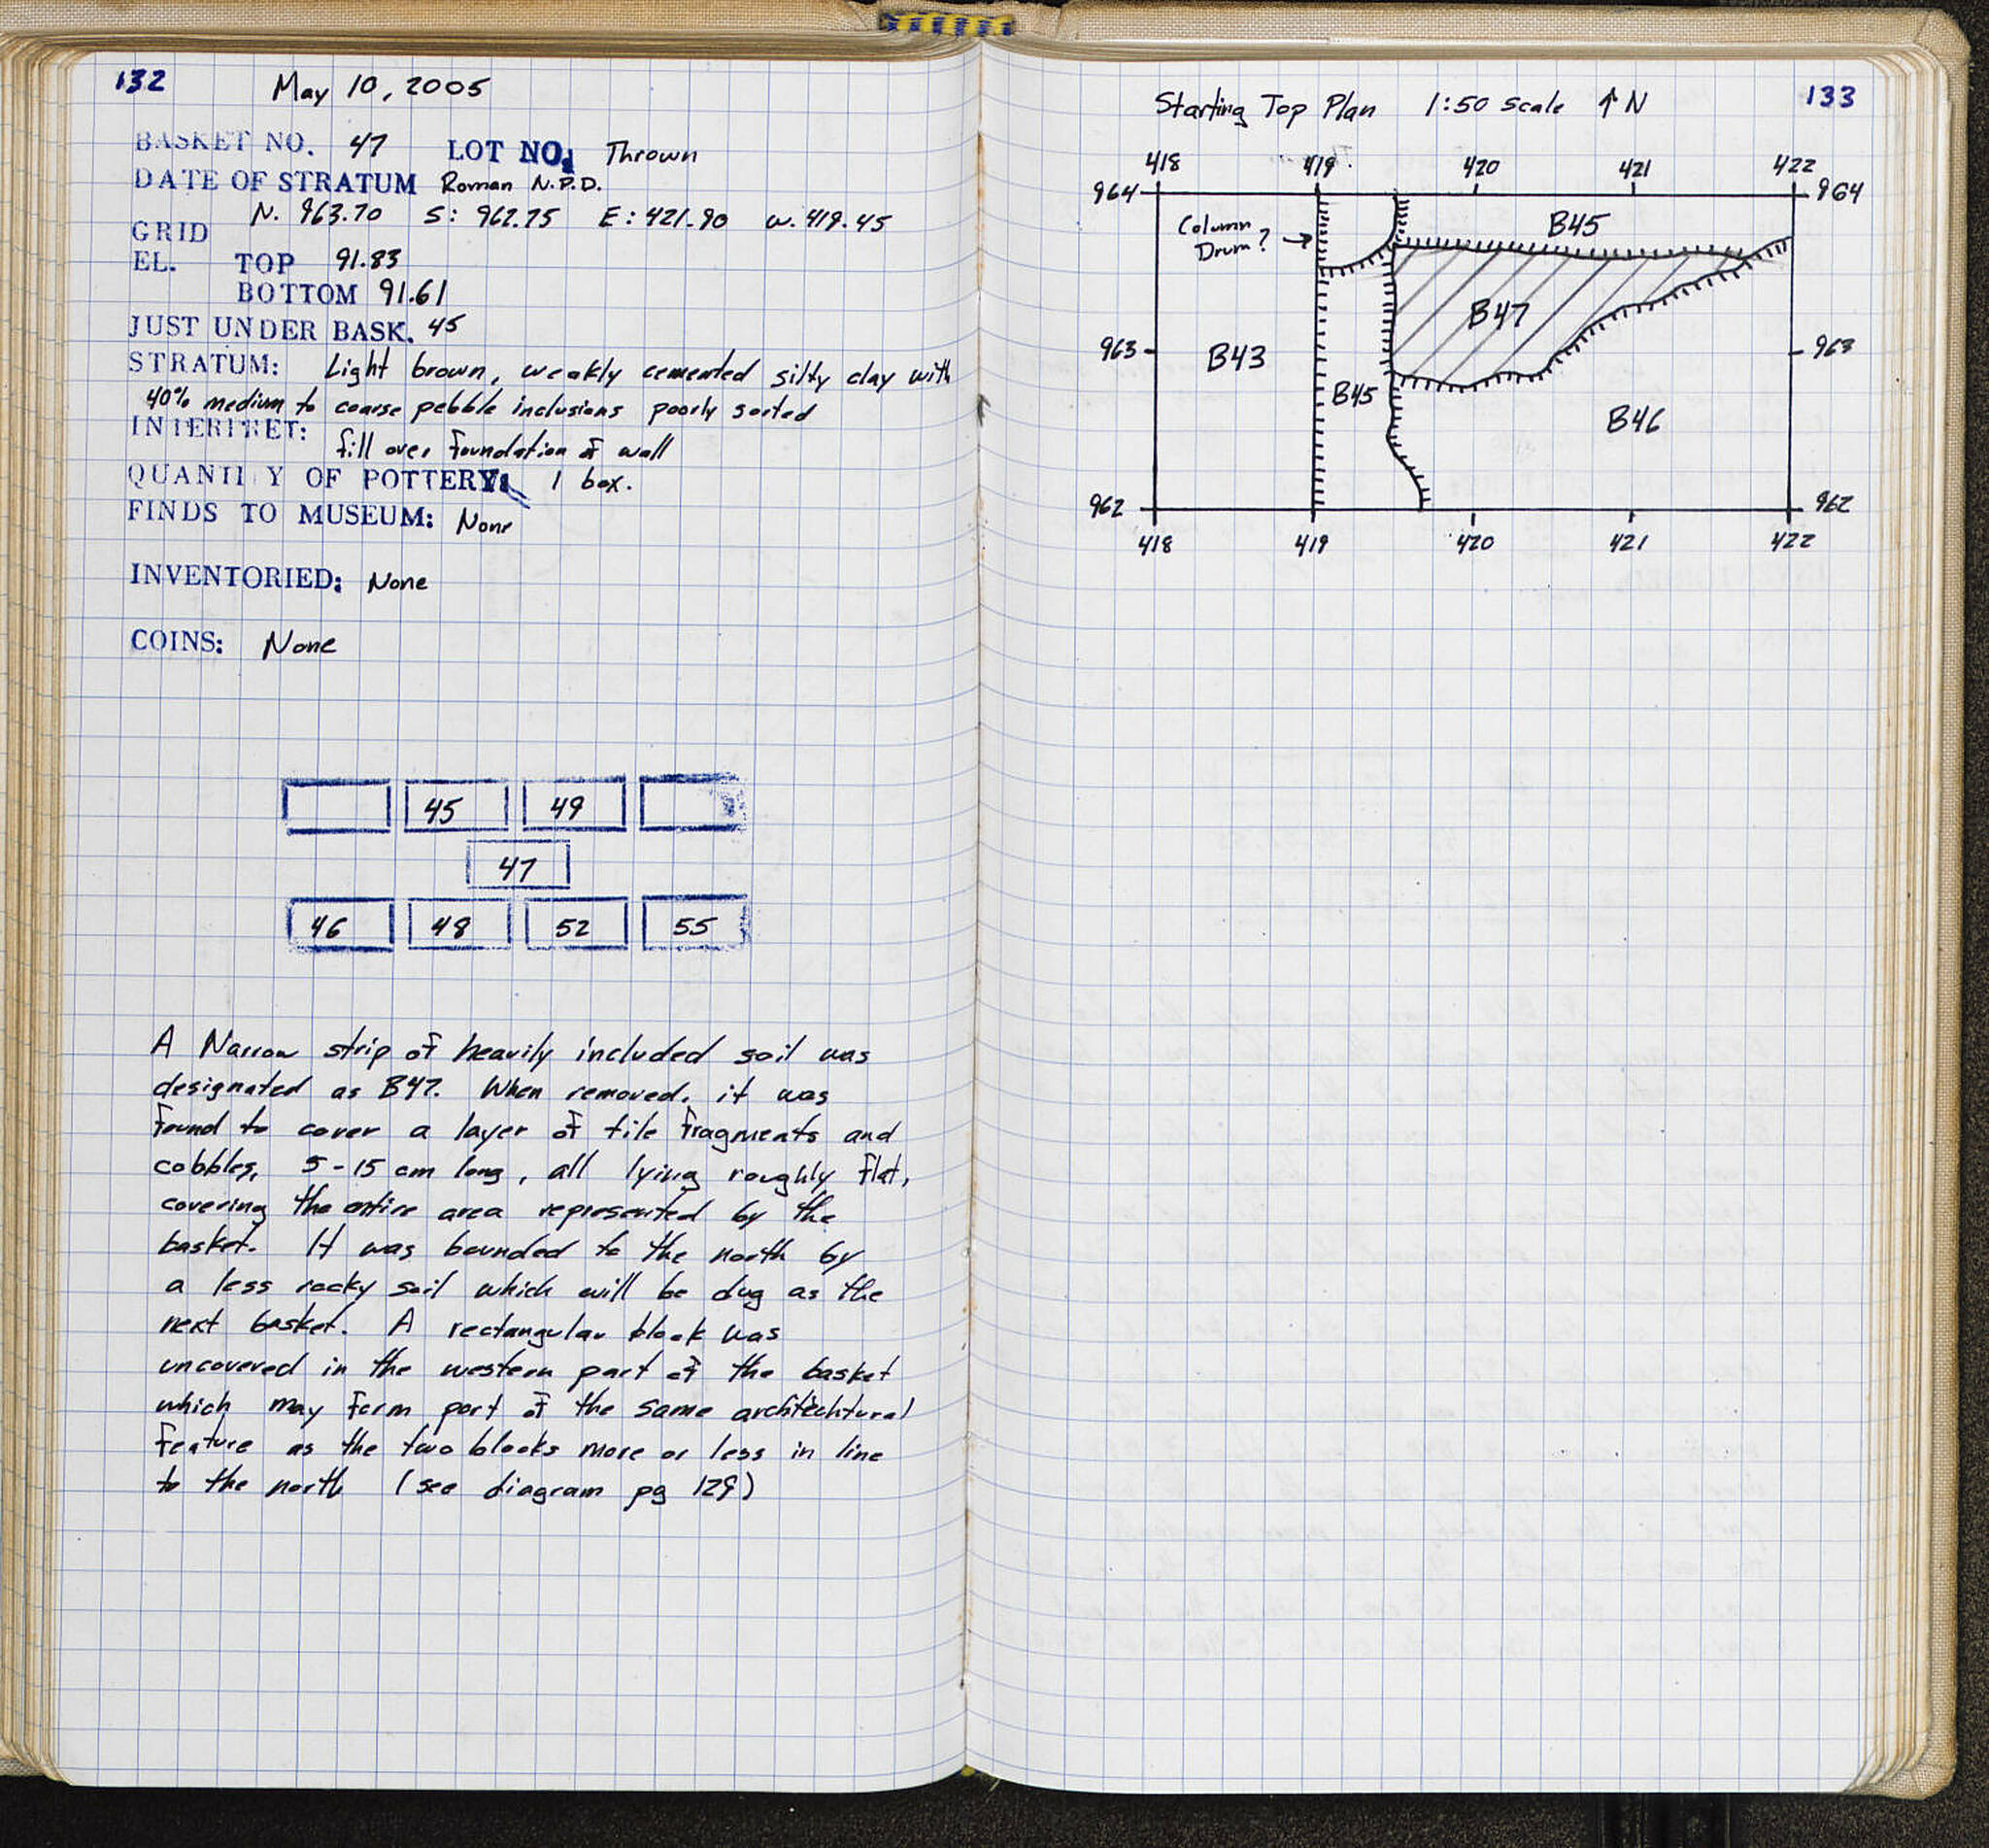 132 May 10, 2005
BASKET NO. 47 LOT NO. Thrown
DATE OF STRATUM Roman N.P.D.
N. 963.70 S: 962.75 E: 421.90 W. 419.45
GRID
EL. TOP 91.83
BOTTOM 91.61
JUST UNDER BASK. 45
STRATUM: Light brown, weakly cemented silty clay with
40% medium to coarse pebble inclusions poorly sorted
INTERPRET: fill over foundation of wall
QUANTITY OF POTTERY: 1 box.
FINDS TO MUSEUM: None
INVENTORIED: None
COINS: None
45 49
47
46 48 52 55
A Narrow strip of heavily included soil was
designated as B47. When removed, it was
found to cover a layer of tile fragments and
cobbles, 5-15 cm long, all lying roughly flat,
covering the entire area represented by the
basket. It was bounded to the north by
a less rocky soil which will be dug as the
next basket. A rectangular block was
uncovered in the western part of the basket
which may form part of the same architechtural
feature as the two blocks more or less in line
to the north (see diagram pg 129)
Starting Top Plan 1:50 scale ↑ N 133
418 419 420 421 422
964 964
Column
Drum? →
B45
B47
963 963
B43
B45
B46
962 962
418 419 420 421 422